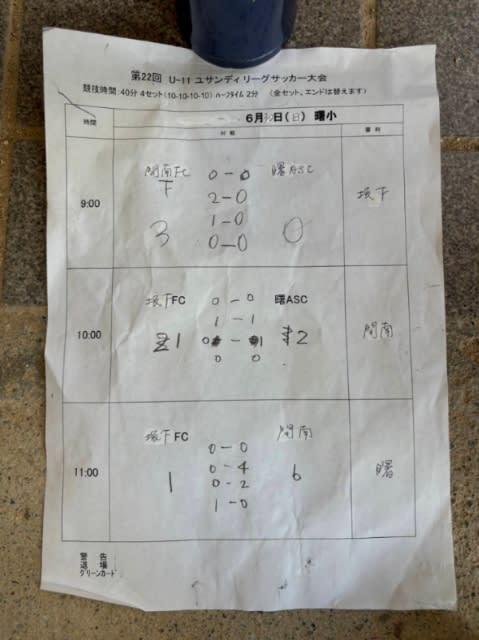 第22回 U-11 ユサンディリーグサッカー大会
競技時間:40分 4セット(10-10-10-10) ハーフタイム 2分 (全セット、エンドは替えます)
時間 6月 日(日) 曙小
対戦 審判
開南FC 0-0 曙ASC
下
2-0
9:00 垣下
1-0
3 0
0-0
垣下FC 0-0 曙ASC
1-1
10:00 1 0-1 2 開南
0 0
垣下FC 0-0 開南
0-4
11:00 1 6 曙
0-2
1-0
警告
退場
グリーンカード